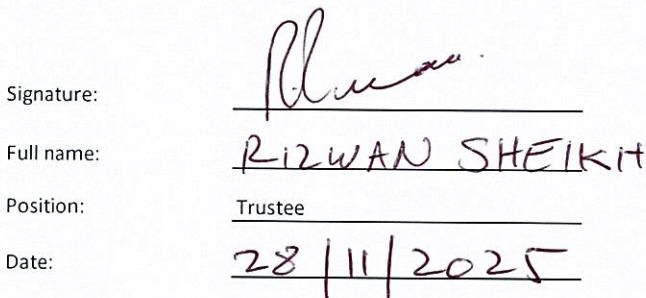 Signature:
Full name: RIZWAN SHEIKH
Position: Trustee
Date: 28/11/2025